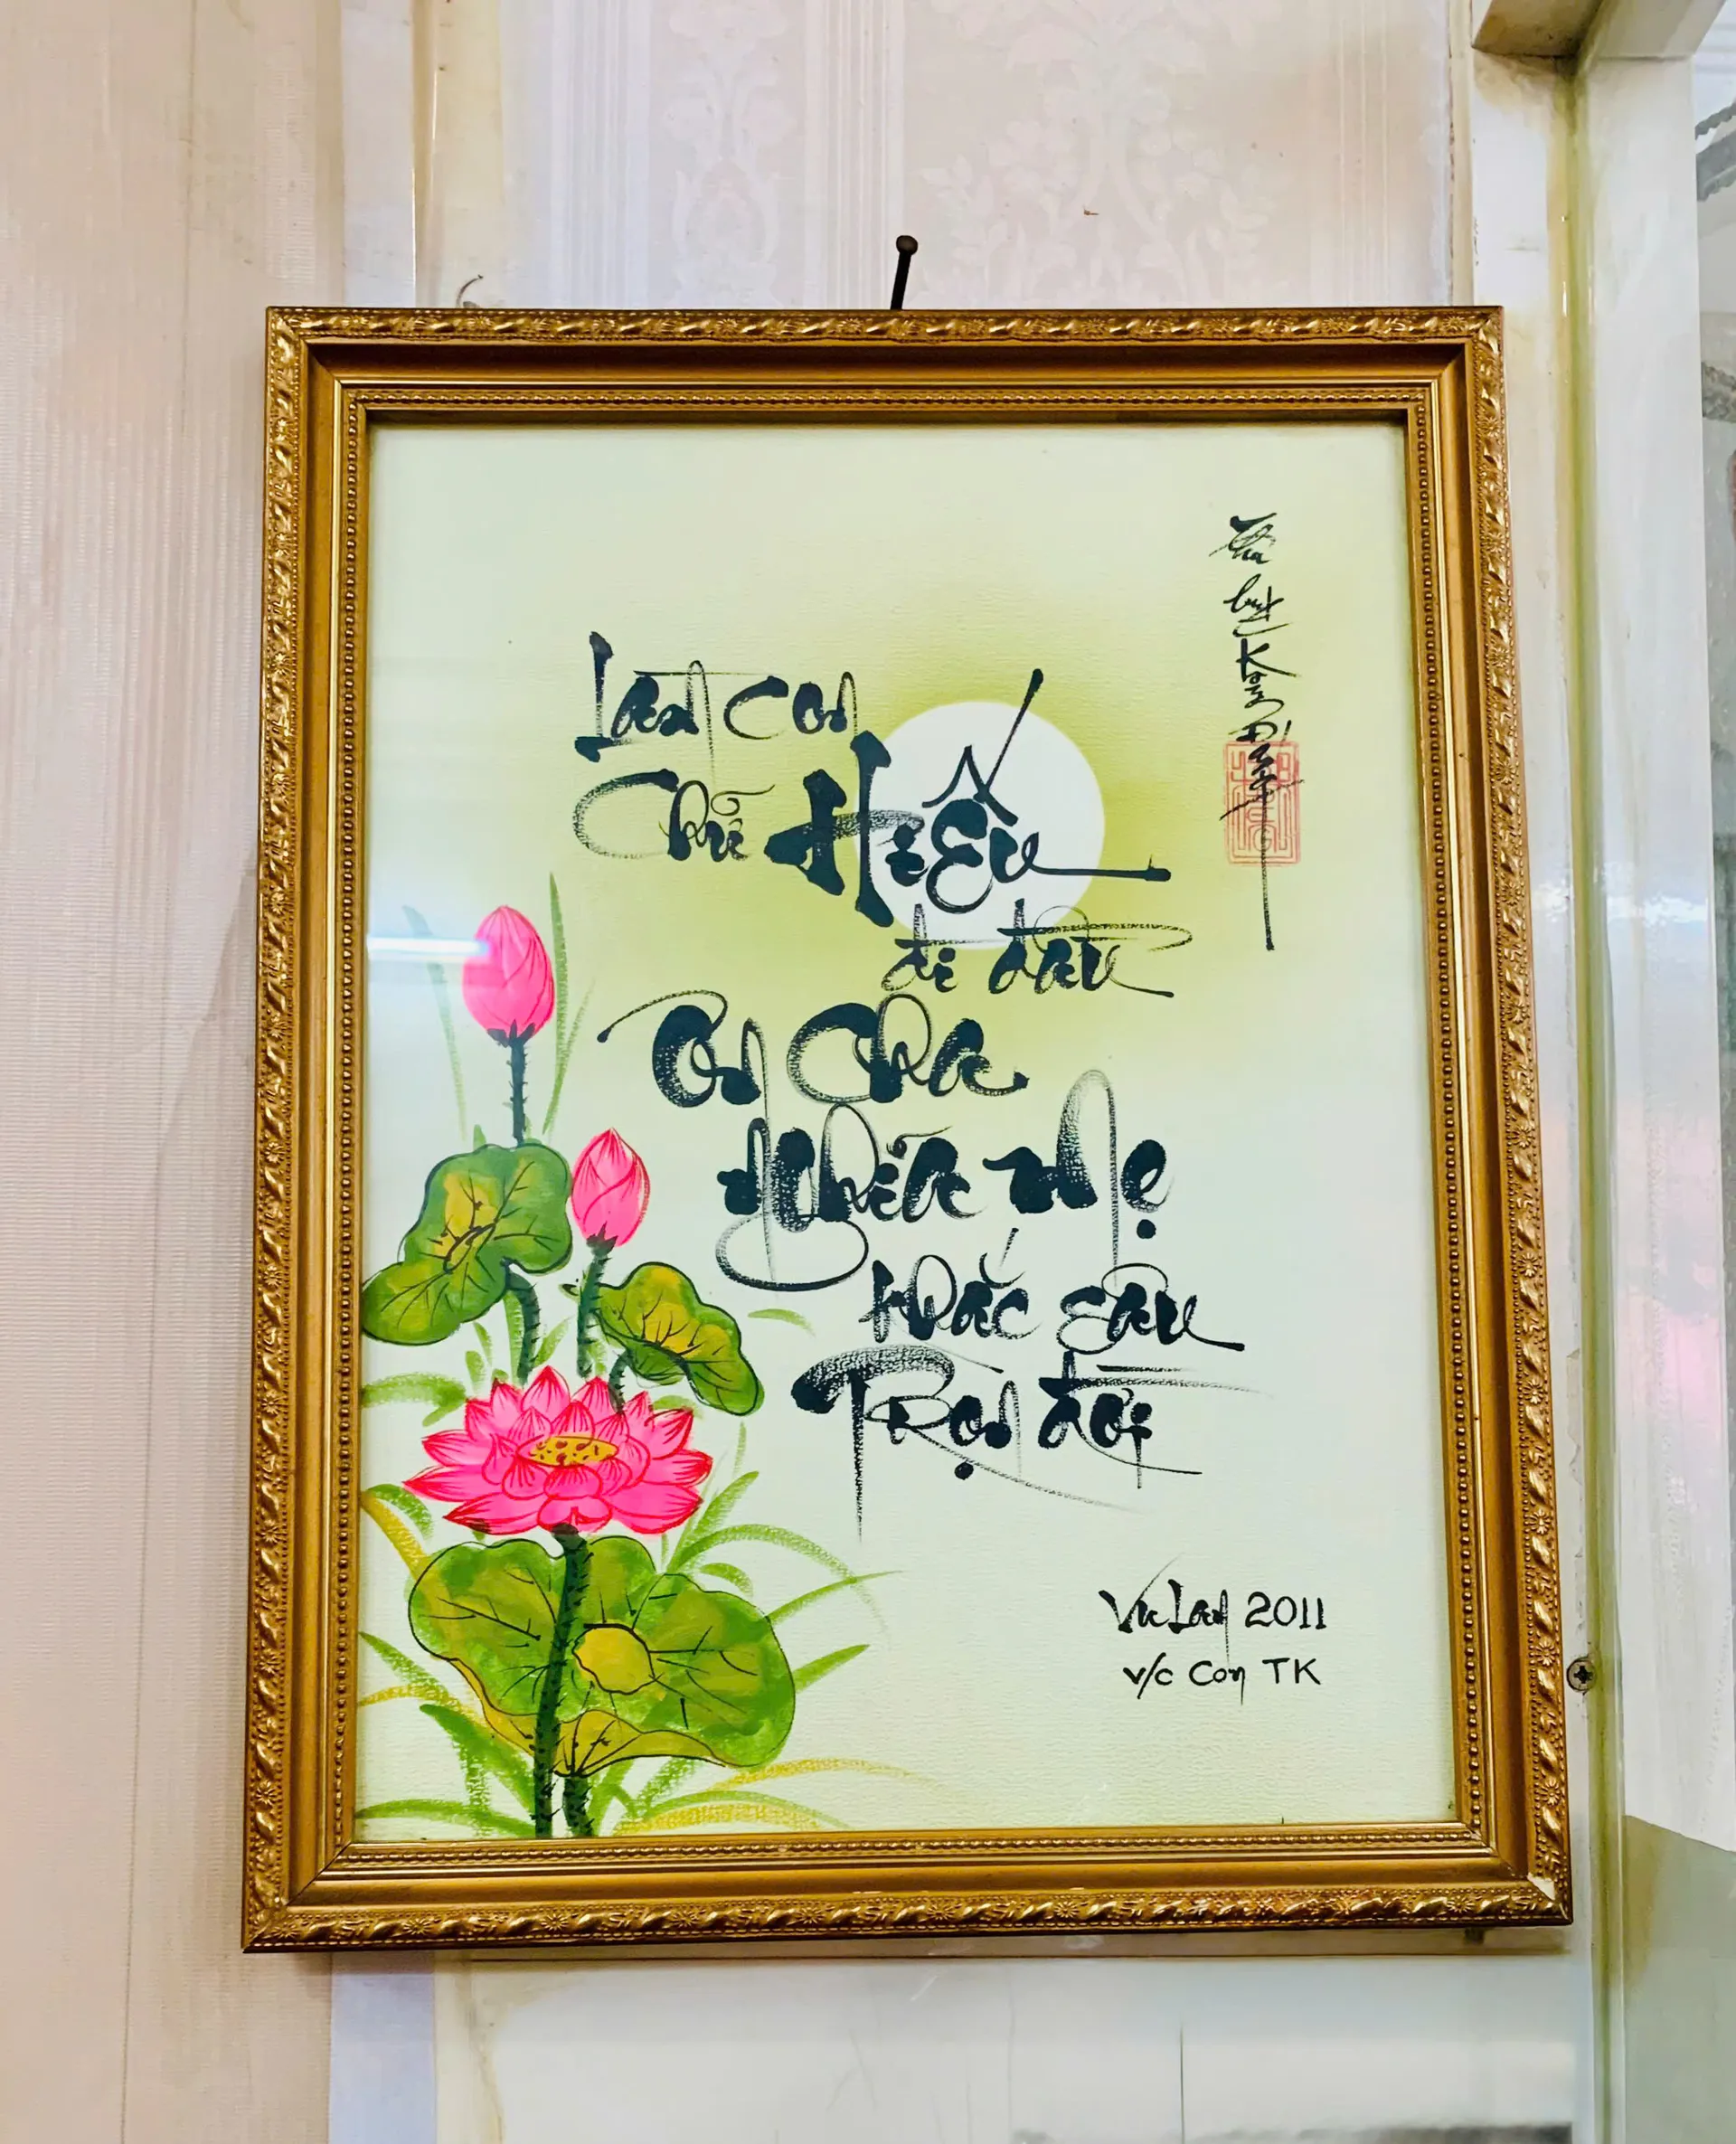 Làm con
Chữ Hiếu
đi đầu
Ơn Cha
nghĩa mẹ
khắc sâu
Trọn đời
Vu Lan 2011
v/c Con TK